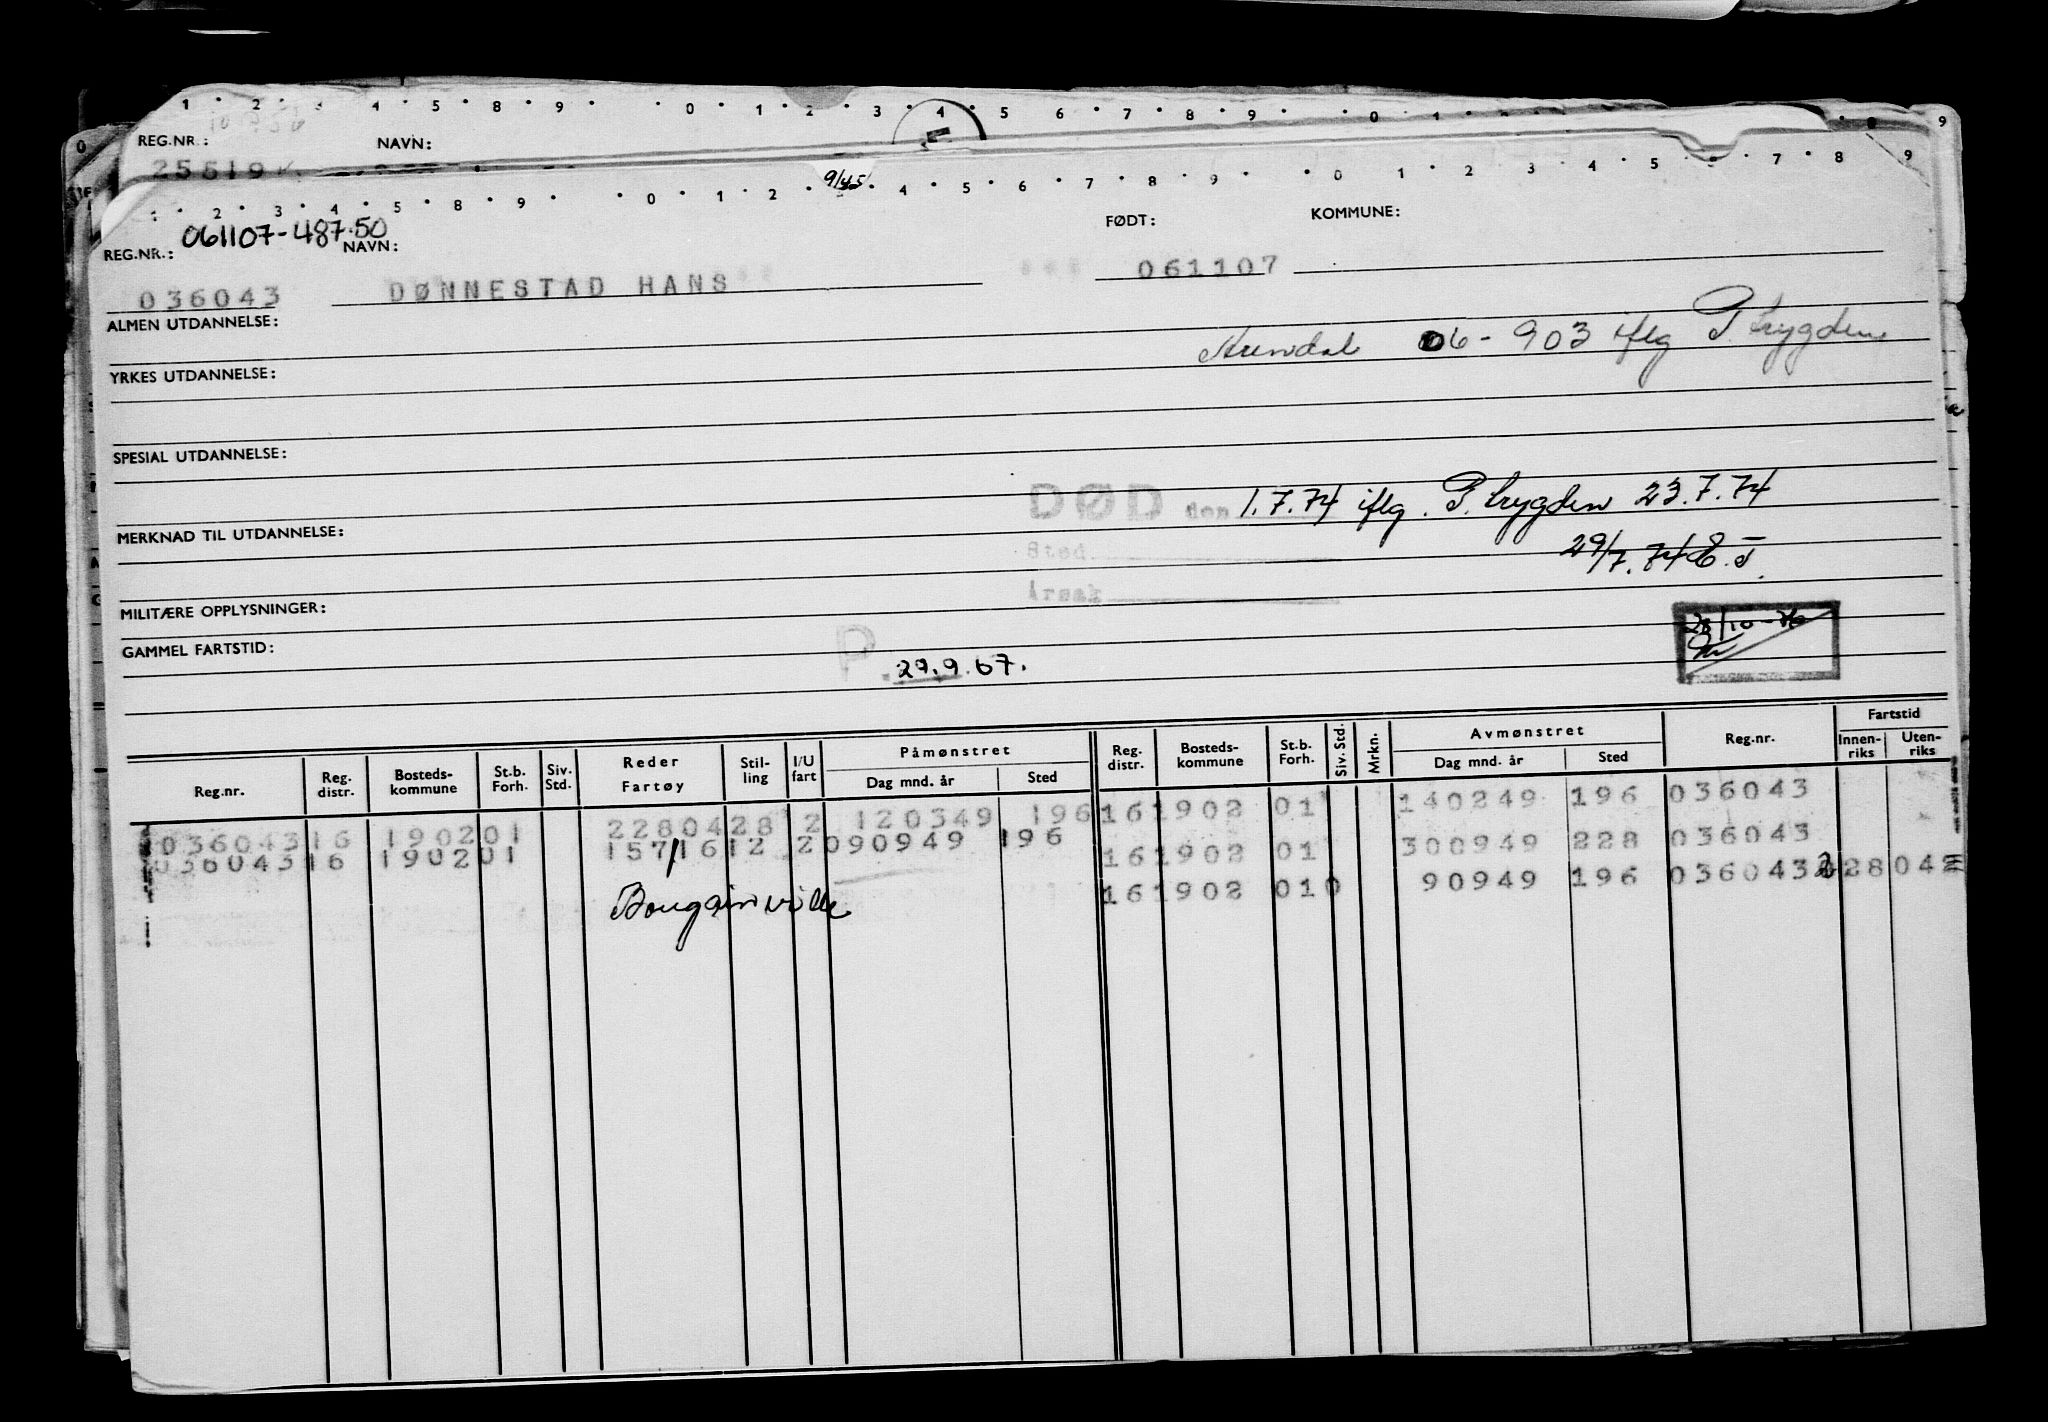 1 · 2 · 3 4 · 5 · 8 · 9 · 0 · 1 · 2 · 3 · 4 · 5 6 · 7 · 8 · 9 · 0 1 9
REG.NR.: NAVN:
25519
1 · 2 · 3 · 4 · 5 · 8 · 9 · 0 · 1 · 2 · 9/45 · 4 · 5 · 6 · 7 · 8 · 9 · 0 1 · 2 · 3 · 4 · 5 · 7 · 8 9
REG.NR.: 061107-487.50 NAVN: FØDT: KOMMUNE:
036043 DØNNESTAD HANS 061107
ALMEN UTDANNELSE:
Arendal 06-903 iflg P.trygden
YRKES UTDANNELSE:
SPESIAL UTDANNELSE:
DØD den 1.7.74 iflg. P.trygden 23.7.74
MERKNAD TIL UTDANNELSE:
Sted 29/7.74 E.J.
Årsak
MILITÆRE OPPLYSNINGER:
GAMMEL FARTSTID:
P. 29.9.67.
Reg.nr. Reg. distr. Bosteds- kommune St.b. Forh. Siv. Std. Reder Fartøy Stil- ling I/U fart Påmønstret Dag mnd. år Sted Reg. distr. Bosteds- kommune St.b. Forh. Siv. Std. Mrkn. Avmønstret Dag mnd. år Sted Reg.nr. Fartstid Innen- riks Uten- riks
036043 16 1902 01 22804 28 2 120349 196 16 1902 01 140249 196 036043
036043 16 1902 01 157/16 12 2 090949 196 16 1902 01 300949 228 036043
Bougainville 16 1902 01 0 90949 196 036043 28 04